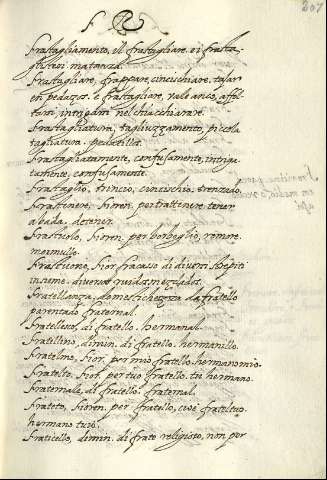 F R
207
Frastagliamento, il frastagliare. vi frasta-
Frastagliare, frappare, cincischiare, tajar
en pedazos. è frastagliare, vale anco, affol-
tarsi, intrigarsi nel chiacchiarare.
Frastagliatura, tagliuzzamento, picciola
tagliatura, pedacillo.
Frastagliatamente, confusamente, intriga-
tamente, confusamente.
Frastaglio, trincio, cincischio. trenzado.
Frastinere, Fioren. per trattenere. tener
a bada, detener.
Frastuolo, Fioren. per borbeglio, romore.
mormullo.
Frastuono, Fior. fracasso di diversi strepiti
insieme. diversos ruidos mezclados.
Fratellanza, domestichezza da fratello
parentado fraternal.
Fratellesco, di fratello. hermanal.
Fratellino, dimin. di fratello. hermanillo.
Fratelmo, Fior. per mio fratello. hermano mio.
Fratelto, Fior. per tuo fratello. tu hermano.
Fraternale, di fratello. fraternal.
Frateto, Fioren. per fratello, cioè fratel tuo.
hermano tuio.
Fraticello, dimin. di frate religioso, non per